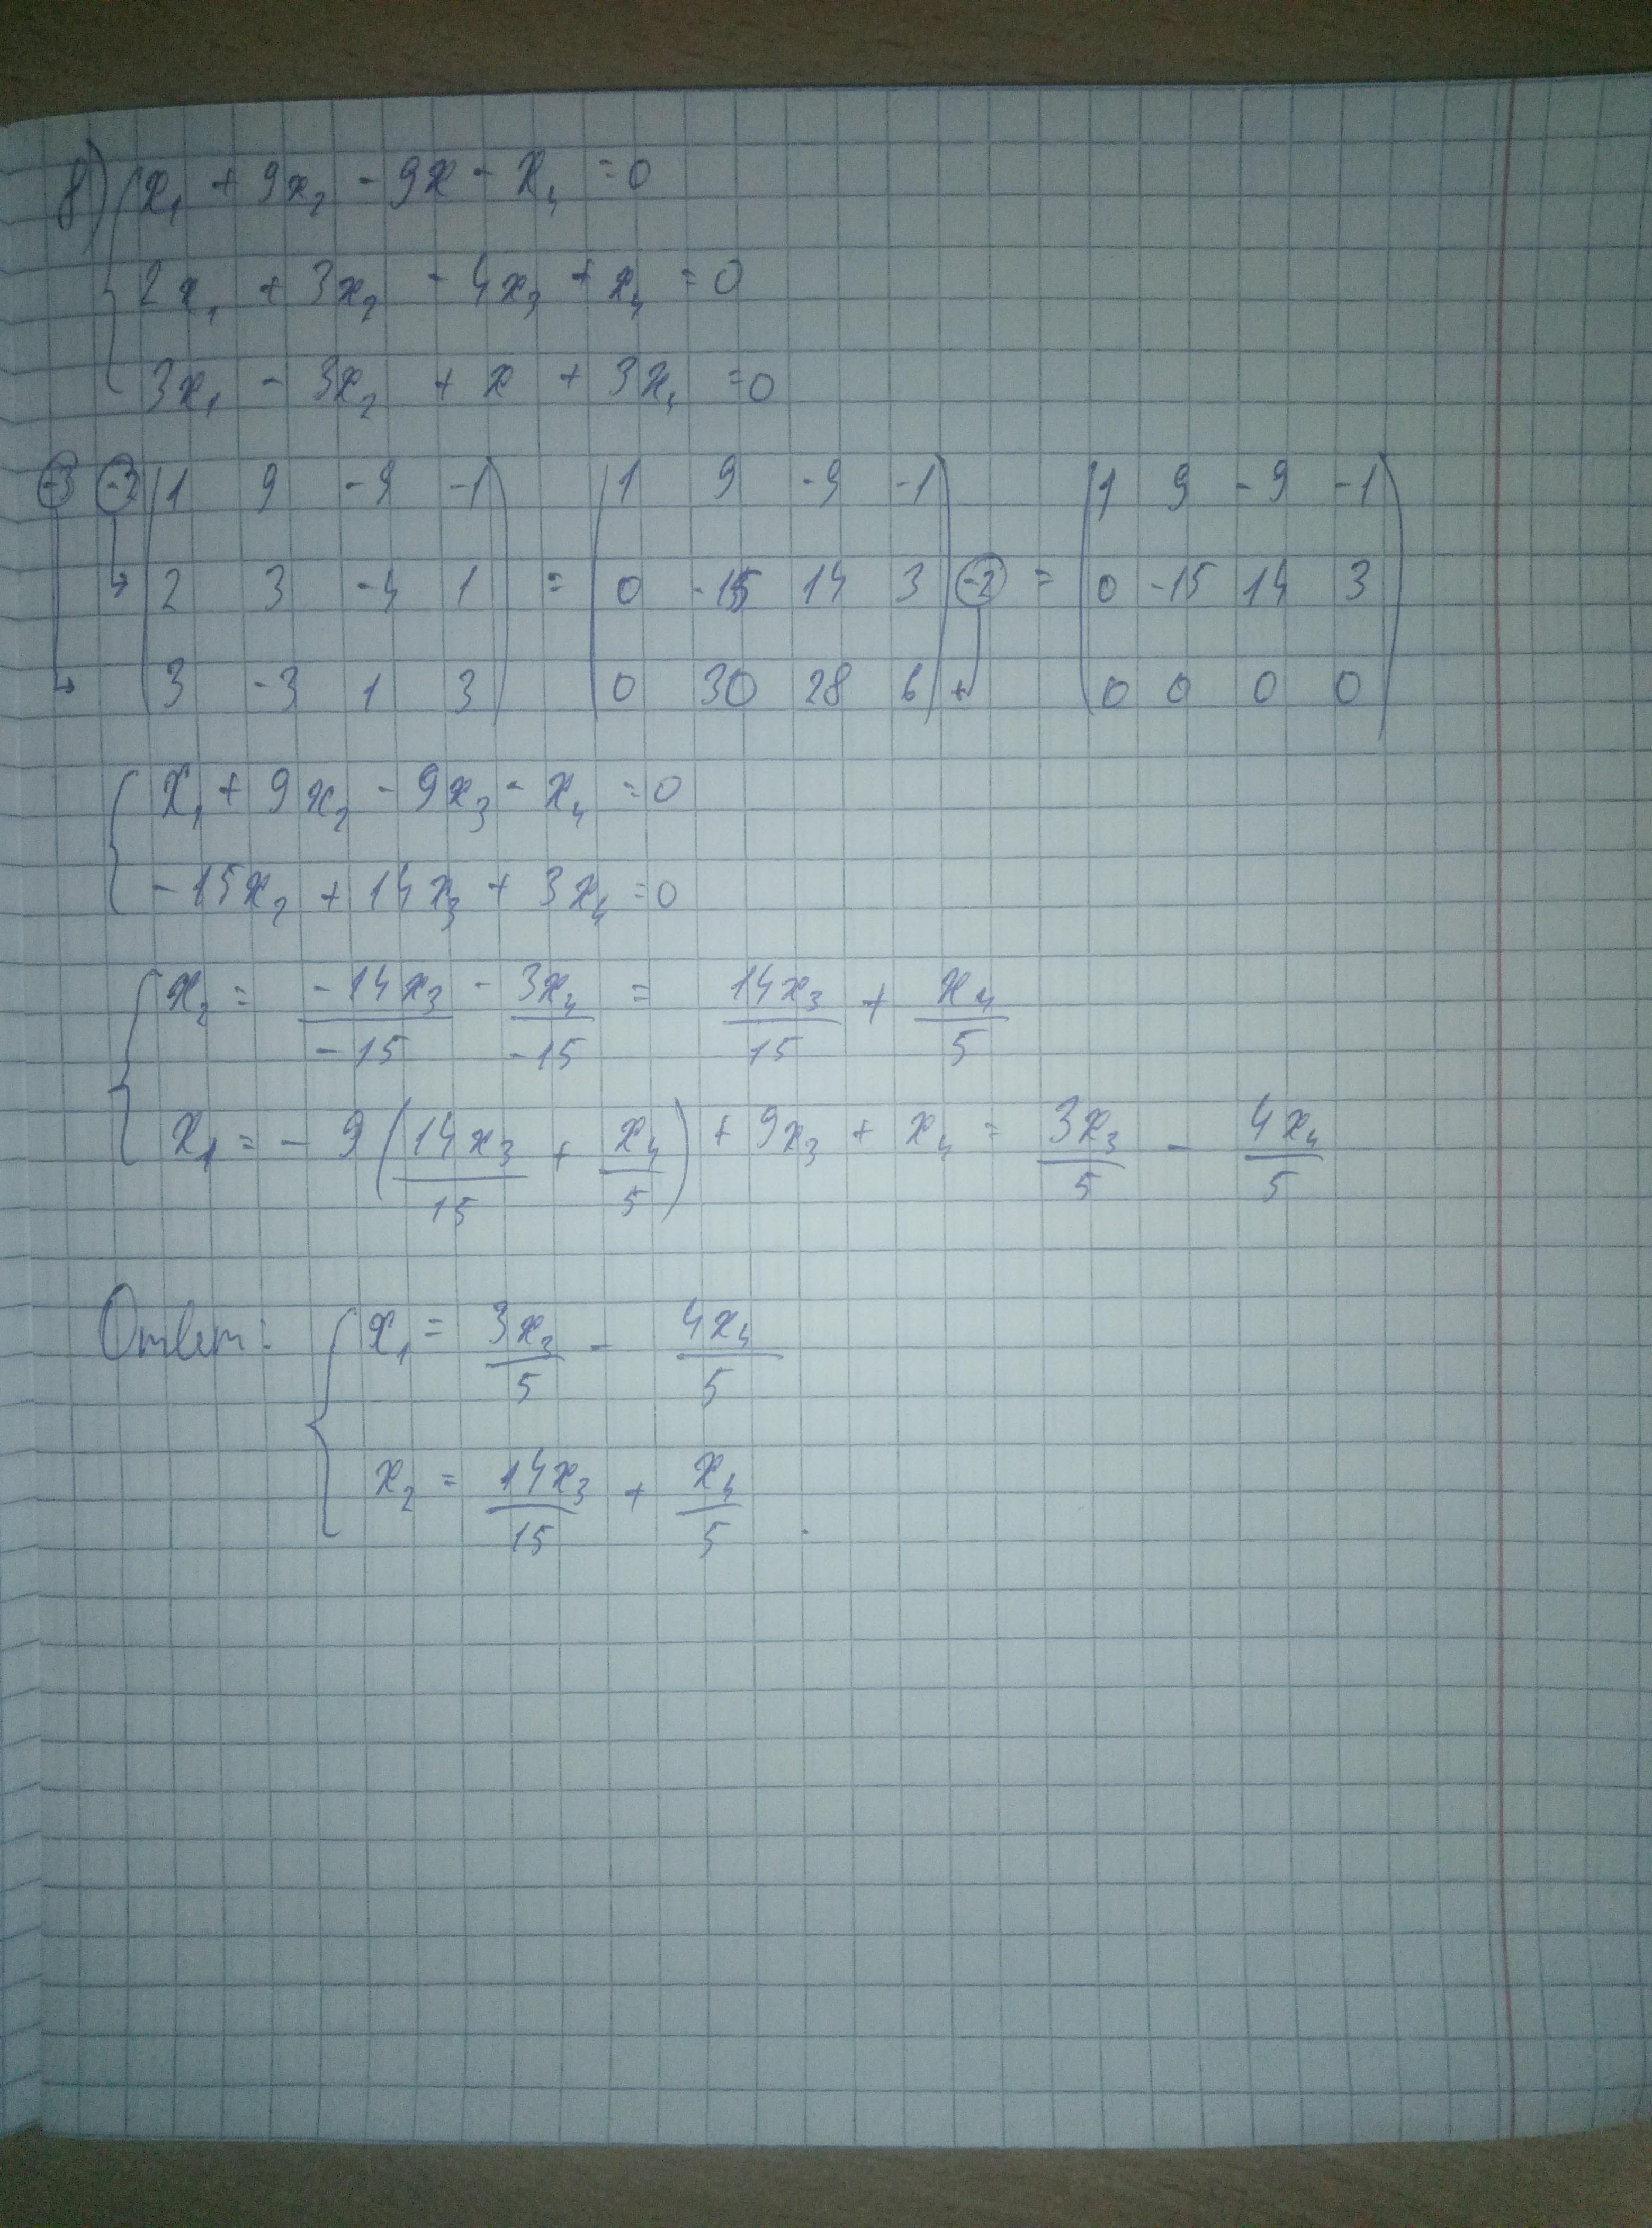 8) { x₁ + 9x₂ - 9x - x₄ = 0
2x₁ + 3x₂ - 4x₃ + x₄ = 0
3x₁ - 3x₂ + x + 3x₄ = 0
-3 -2 ( 1 9 -9 -1 ) ( 1 9 -9 -1 ) ( 1 9 -9 -1 )
2 3 -4 1 = 0 -15 14 3 -2 = 0 -15 14 3
3 -3 1 3 0 30 28 6 + 0 0 0 0
{ x₁ + 9x₂ - 9x₃ - x₄ = 0
-15x₂ + 14x₃ + 3x₄ = 0
{ x₂ = -14x₃/-15 - 3x₄/-15 = 14x₃/15 + x₄/5
x₁ = -9(14x₃/15 + x₄/5) + 9x₃ + x₄ = 3x₃/5 - 4x₄/5
Ответ: { x₁ = 3x₃/5 - 4x₄/5
x₂ = 14x₃/15 + x₄/5 .